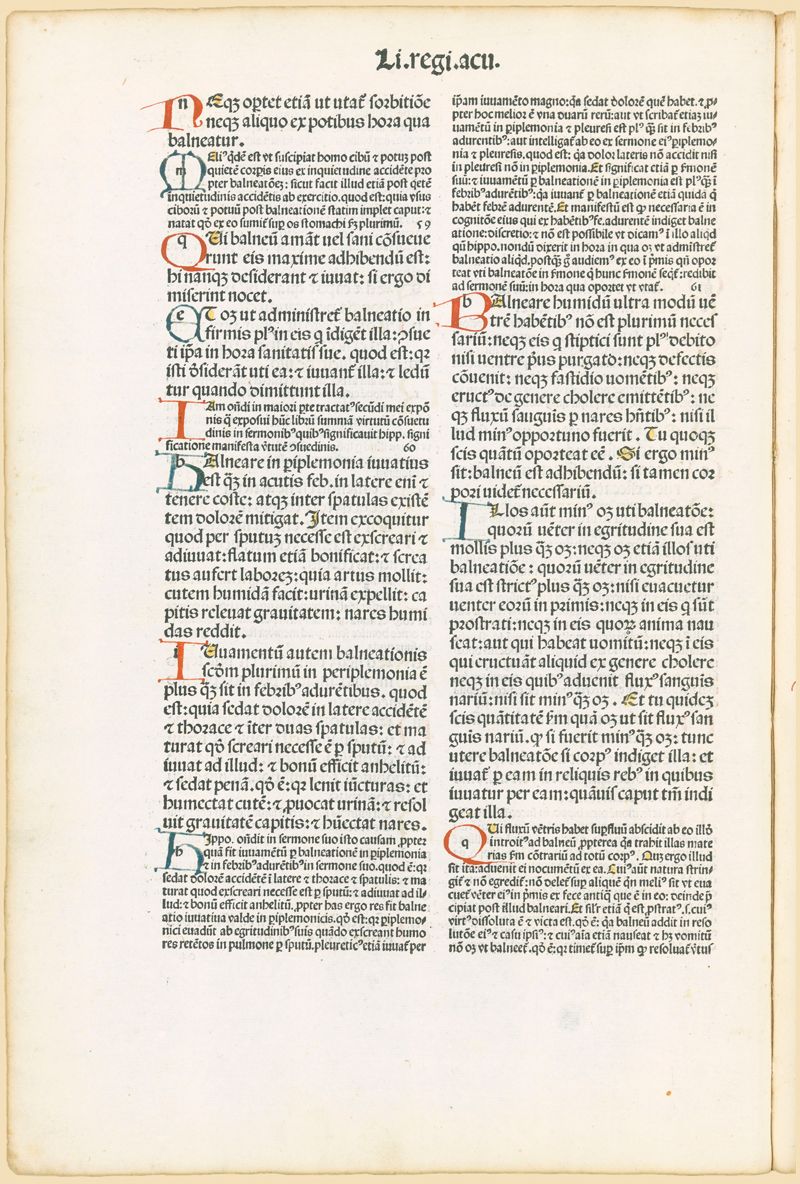 Li.regi.acu.
NEqꝫ oꝑtet etiā ut utat᷑ sorbitiōe
neqꝫ aliquo ex potibus hora qua
balneatur.
MEli⁹ qdē est vt suscipiat homo cibū ⁊ potuꝫ post
quietē corꝑis eius ex inquietudine accidēte pro
pter balneatōeꝫ: sicut facit illud etiā post qetē
inquietudinis accidētis ab exercitio. quod est: quia vsus
ciborū ⁊ potuū post balneationē statim implet caput: ⁊
natat qō ex eo sumit᷑ suꝑ os stomachi sꝫ plurimū. 59
QUi balneū amāt uel sani cōsueue
runt eis maxime adhibendū est:
hi nanqꝫ desiderant ⁊ iuuat: si ergo di
miserint nocet.
ET oꝫ ut administret᷑ balneatio in
firmis pl⁹ in eis q īdigēt illa: ꝯsue
ti ip̄a in hora sanitatis sue. quod est: qꝛ
isti ꝯsiderāt uti ea: ⁊ iuuant᷑ illa: ⁊ ledū
tur quando dimittunt illa.
IAm oñdi in maiori ꝑte tractat⁹ secūdi mei expō
nis q exposui hūc librū summā virtutū cōsuetu
dinis in sermonib⁹ quib⁹ significauit hipp. signi
ficatione manifesta v̄tutē ꝯsuedinis. 60
BAlneare in ꝑiplemonia iuuatius
est qꝫ in acutis feb. in latere enī ⁊
tenere coste: atqꝫ inter spatulas existē
tem dolorē mitigat. Item excoquitur
quod per sputuꝫ necesse est exscreari ⁊
adiuuat: flatum etiā bonificat: ⁊ screa
tus aufert laboreꝫ: quia artus mollit:
cutem humidā facit: urinā expellit: ca
pitis releuat grauitatem: nares humi
das reddit.
IUuamentū autem balneationis
scōm plurimū in periplemonia ē
plus qꝫ sit in febrib⁹ adurētibus. quod
est: quia sedat dolorē in latere accidētē
⁊ thorace ⁊ īter duas spatulas: et ma
turat qō screari necesse ē ꝑ sputū: ⁊ ad
iuuat ad illud: ⁊ bonū efficit anhelitū:
⁊ sedat penā. qō ē: qꝛ lenit iūcturas: et
humectat cutē: ⁊ ꝓuocat urinā: ⁊ resol
uit grauitatē capitis: ⁊ hūectat nares.
HIppo. oñdit in sermone suo isto causam ꝓpter
quā fit iuuamētū ꝑ balneationē in ꝑiplemonia
⁊ in febrib⁹ adurētib⁹ in sermone suo. quod ē: qꝛ
sedat dolorē accidētē ī latere ⁊ thorace ⁊ spatulis: ⁊ ma
turat quod exscreari necesse est ꝑ sputū: ⁊ adiuuat ad il-
lud: ⁊ bonū efficit anhelitū. ꝓpter has ergo res fit balne
atio iuuatiua valde in ꝑiplemonicis. qō est: qꝛ ꝑiplemo-
nici euadūt ab egritudinib⁹ suis quādo exscreant humo
res retētos in pulmone ꝑ sputū. pleuretic⁹ etiā iuuat᷑ per
ip̄am iuuamēto magno: qa sedat dolorē quē habet. ⁊ ꝓ-
pter hoc melior ē vna duarū rerū: aut vt scribat᷑ etiaꝫ iu-
uamētū in ꝑiplemonia ⁊ pleuresi est pl⁹ qꝫ sit in febrib⁹
adurentib⁹: aut intelligat᷑ ab eo ex sermone ei⁹ ꝑiplemo-
nia ⁊ pleuresis. quod est: qa dolor lateris nō accidit nisi
in pleuresi nō in ꝑiplemonia. Et significat etiā ꝑ sermonē
suū: ⁊ iuuamētū ꝑ balneationē in ꝑiplemonia est pl⁹ qꝫ ī
febrib⁹ adurētib⁹: qa iuuant᷑ ꝑ balneationē etiā quidā q̄
habēt febrē adurentē. Et manifestū est qꝫ necessaria ē in
cognitōe eius qui ex habētib⁹ fe. adurentē indiget balne
atione: discretio: ⁊ nō est possibile vt dicam⁹ ī illo aliqd
qū hippo. nondū dixerit in hora in qua oꝫ vt admistret᷑
balneatio aliqd. postqꝫ q̄ audiem⁹ ex eo ī pmis qn̄ opor
teat vti balneatōe in smone q hunc smonē seqt᷑: redibit
ad sermonē suū: in hora qua oportet vt vtat᷑. 61
BAlneare humidū ultra modū uē
trē habētib⁹ nō est plurimū neces
sariū: neqꝫ eis q stiptici sunt pl⁹ debito
nisi uentre pus purgato: neqꝫ defectis
cōuenit: neqꝫ fastidio uomētib⁹: neqꝫ
eruct⁹ de genere cholere emittētib⁹: ne
qꝫ fluxū sanguīs ꝑ nares hñtib⁹: nisi il
lud min⁹ opportuno fuerit. Tu quoqꝫ
scis quātū oporteat eē. Si ergo min⁹
sit: balneū est adhibendū: si tamen cor
pori uidet᷑ necessariū.
ILlos aūt min⁹ oꝫ uti balneatōe:
quorū uēter in egritudine sua est
mollis plus qꝫ oꝫ: neqꝫ oꝫ etiā illos uti
balneatiōe: quorū uēter in egritudine
sua est strict⁹ plus qꝫ oꝫ: nisi euacuetur
uenter eorū in primis: neqꝫ in eis q sūt
prostrati: neqꝫ in eis quoꝝ anima nau
seat: aut qui habeat uomitū: neqꝫ ī eis
qui eructuāt aliquid ex genere cholere
neqꝫ in eis quib⁹ aduenit flux⁹ sanguis
nariū: nisi sit min⁹ qꝫ oꝫ. Et tu quideꝫ
scis quātitatē sm quā oꝫ ut sit flux⁹ san
guis nariū. qꝫ si fuerit min⁹ qꝫ oꝫ: tunc
utere balneatōe si corp⁹ indiget illa: et
iuuat᷑ ꝑ eam in reliquis reb⁹ in quibus
iuuatur per eam: quāuis caput tm̄ indi
geat illa.
QUi fluxū vētris habet suꝑfluū abscidit ab eo illō
introit⁹ ad balneū ꝓpterea qa trahit illas mate
rias sm cōtrariū ad totū corp⁹. Quꝫ ergo illud
sit ita: adueniet ei nocumētū ex ea. Cui⁹ aūt natura strin-
git᷑ ⁊ nō egredit᷑: nō delet᷑ suꝑ aliquē qn meli⁹ sit vt eua
cuet᷑ vēter ei⁹ in pmis ex fece antiq̄ que ē in eo: deinde p̄
cipiat post illud balneari. Et silr etiā q est ꝓstrat⁹. s. cui⁹
virt⁹ dissoluta ē ⁊ victa est. qō ē: qa balneū addit in reso
lutōe ei⁹ ⁊ casu ip̄si⁹: ⁊ cui⁹ aīa etiā nauseat ⁊ hꝫ vomitū
nō oꝫ vt balneet᷑. qō ē: qꝛ timet᷑ suꝑ ip̄m qꝫ resoluat᷑ v̄tus